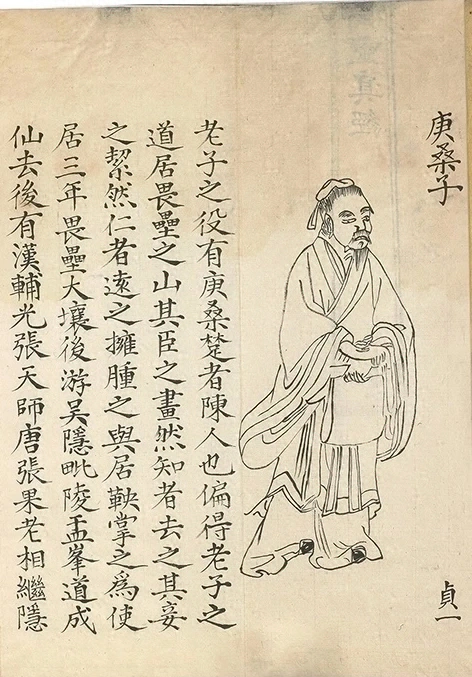 庚桑子
貞一
老子之役有庚桑楚者陳人也偏得老子之
道居畏壘之山其臣之畫然知者去之其妾
之挈然仁者遠之擁腫之與居鞅掌之為使
居三年畏壘大壤後游吴隱毗陵盂峯道成
仙去後有漢輔光張天師唐張果老相繼隱